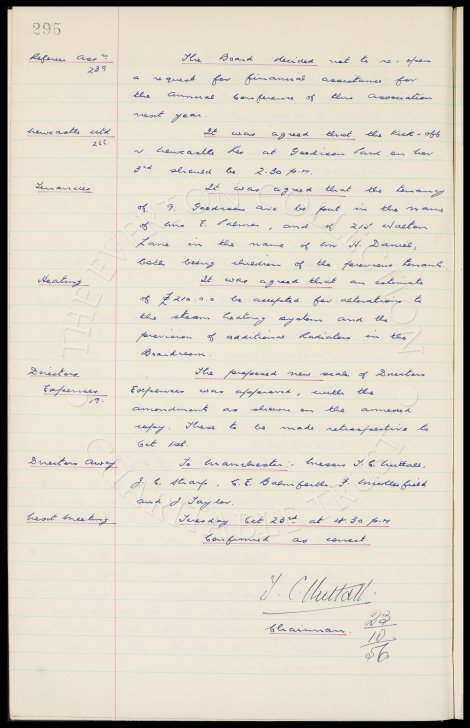 295
Referees Assn. The Board decided not to re-open
239 a request for financial assistance for
the Annual Conference of this Association
next year.
Newcastle Utd It was agreed that the Kick-off
266 v Newcastle Res at Goodison Park on Nov
3rd should be 2-30 p.m.
Tenancies It was agreed that the tenancy
of 9. Goodison Ave be put in the name
of Mrs E. Palmer, and of 215 Walton
Lane in the name of Mr H. Daniel,
both being children of the previous tenants.
Heating It was agreed that an estimate
of £210.0.0 be accepted for alterations to
the steam heating system and the
provision of additional Radiators in the
Boardroom.
Directors The proposed new scale of Directors
Expenses Expenses was approved, with the
19. amendment as shewn on the annexed
copy. These to be made retrospective to
Oct 1st.
Directors Away To Manchester, Messrs T. C. Nuttall,
J. C. Sharp, C. E. Balmforth, F. Micklesfield
and J. Taylor.
Next Meeting Tuesday Oct 23rd at 4.30 p.m
Confirmed as correct.
T. C. Nuttall.
Chairman. 23
10
56
THE EVERTON COLLECTION
CHARITABLE TRUST